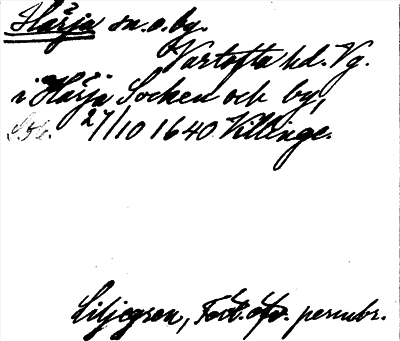 Härja sn. o. by.
Vartofta hd. Vg.
i Härja Socken och by,
27/10 1640 Villinge.
Liljegren, Fört. öfv. permbr.